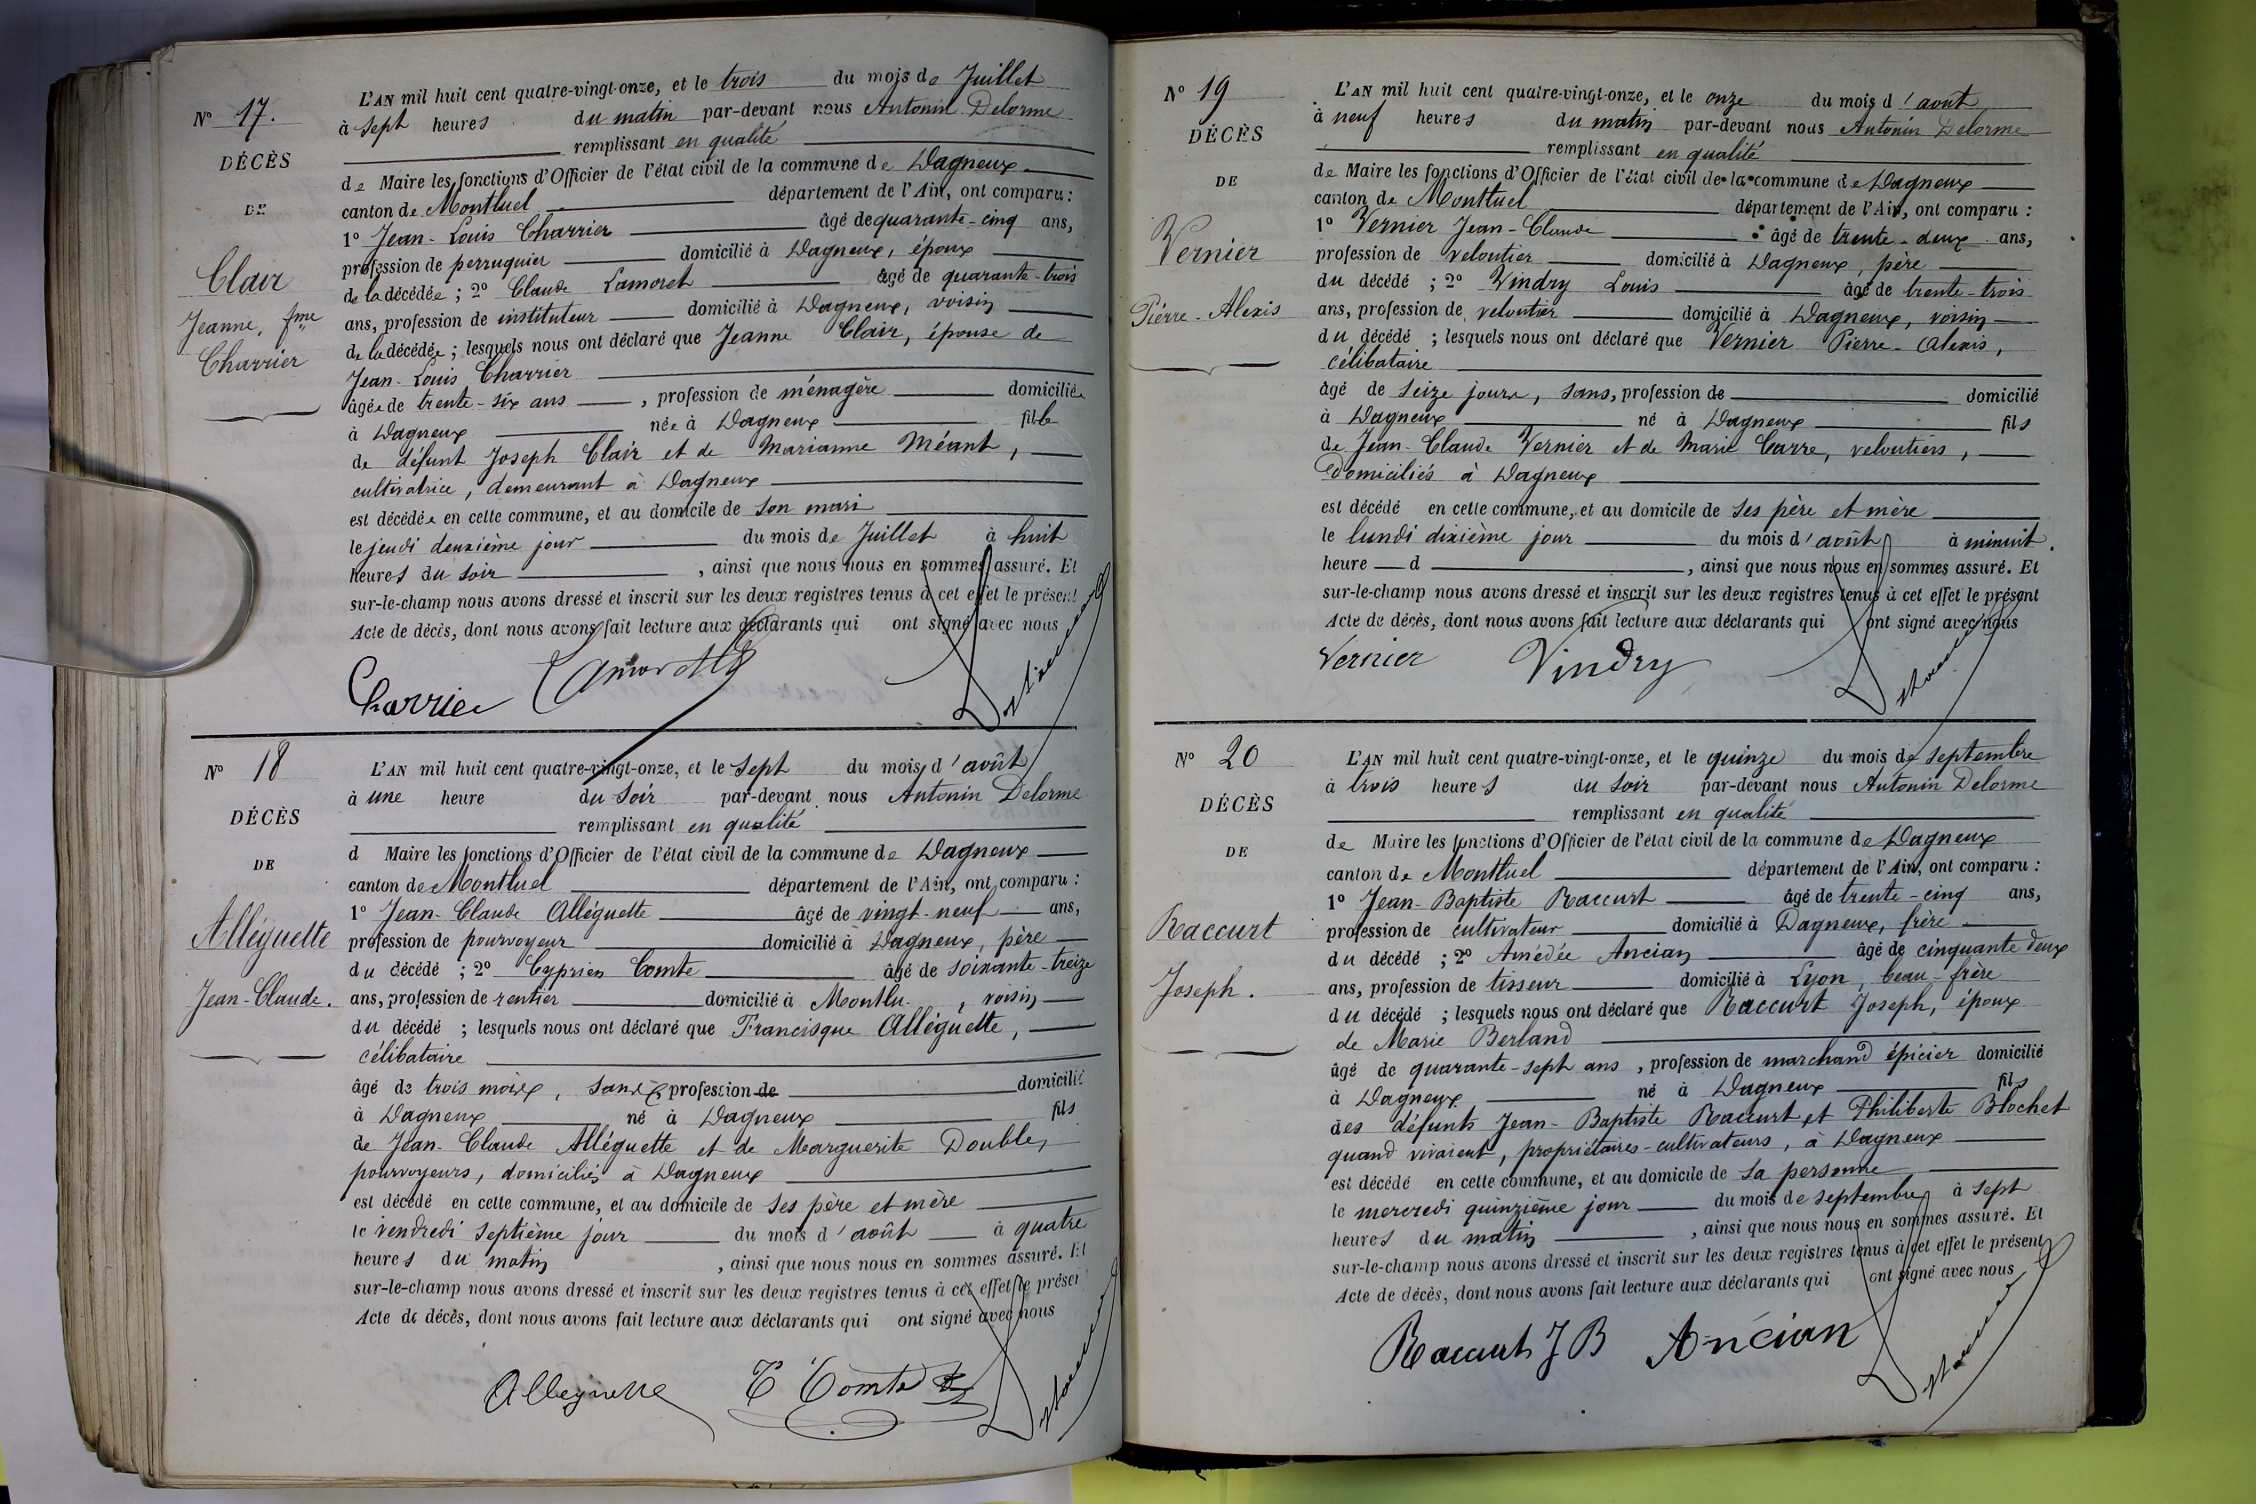 N° 17.
DÉCÈS
DE
Clair
Jeanne, fme
Charrier
L'AN mil huit cent quatre-vingt-onze, et le trois du mois de Juillet
à sept heures du matin par-devant nous Antonin Delorme
remplissant en qualité
de Maire les fonctions d'Officier de l'état civil de la commune de Dagneux
canton de Montluel département de l'Ain, ont comparu :
1° Jean-Louis Charrier âgé de quarante-cinq ans,
profession de perruquier domicilié à Dagneux, époux
de la décédée ; 2° Claude Lamoret âgé de quarante-trois
ans, profession de instituteur domicilié à Dagneux, voisin
de la décédée ; lesquels nous ont déclaré que Jeanne Clair, épouse de
Jean-Louis Charrier
âgée de trente-six ans, profession de ménagère domiciliée
à Dagneux née à Dagneux fille
de défunt Joseph Clair et de Marianne Méant,
cultivatrice, demeurant à Dagneux
est décédée en cette commune, et au domicile de son mari
le jeudi deuxième jour du mois de Juillet à huit
heures du soir, ainsi que nous nous en sommes assuré. Et
sur-le-champ nous avons dressé et inscrit sur les deux registres tenus à cet effet le présent
Acte de décès, dont nous avons fait lecture aux déclarants qui ont signé avec nous
Charrier
N° 18
DÉCÈS
DE
Alléguette
Jean-Claude.
L'AN mil huit cent quatre-vingt-onze, et le sept du mois d'août
à une heure du soir par-devant nous Antonin Delorme
remplissant en qualité
d Maire les fonctions d'Officier de l'état civil de la commune de Dagneux
canton de Montluel département de l'Ain, ont comparu :
1° Jean-Claude Alléguette âgé de vingt-neuf ans,
profession de pourvoyeur domicilié à Dagneux, père
du décédé ; 2° Cyprien Comte âgé de soixante-treize
ans, profession de rentier domicilié à Montlu. , voisin
du décédé ; lesquels nous ont déclaré que Francisque Alléguette,
célibataire
âgé de trois mois, sans profession de domicilié
à Dagneux né à Dagneux fils
de Jean-Claude Alléguette et de Marguerite Double,
pourvoyeurs, domiciliés à Dagneux
est décédé en cette commune, et au domicile de ses père et mère
le vendredi septième jour du mois d'août à quatre
heures du matin, ainsi que nous nous en sommes assuré. Et
sur-le-champ nous avons dressé et inscrit sur les deux registres tenus à cet effet le présen
Acte de décès, dont nous avons fait lecture aux déclarants qui ont signé avec nous
Alleguette C Comte
N° 19
DÉCÈS
DE
Vernier
Pierre-Alexis
L'AN mil huit cent quatre-vingt-onze, et le onze du mois d'août
à neuf heures du matin par-devant nous Antonin Delorme
remplissant en qualité
de Maire les fonctions d'Officier de l'état civil de la commune de Dagneux
canton de Montluel département de l'Ain, ont comparu :
1° Vernier Jean-Claude âgé de trente-deux ans,
profession de veloutier domicilié à Dagneux, père
du décédé ; 2° Vindry Louis âgé de trente-trois
ans, profession de veloutier domicilié à Dagneux, voisin
du décédé ; lesquels nous ont déclaré que Vernier Pierre-Alexis,
célibataire
âgé de seize jours, sans, profession de domicilié
à Dagneux né à Dagneux fils
de Jean-Claude Vernier et de Marie Carre, veloutiers,
domiciliés à Dagneux
est décédé en cette commune, et au domicile de ses père et mère
le lundi dixième jour du mois d'août à minuit.
heure d , ainsi que nous nous en sommes assuré. Et
sur-le-champ nous avons dressé et inscrit sur les deux registres tenus à cet effet le présent
Acte de décès, dont nous avons fait lecture aux déclarants qui ont signé avec nous
Vernier Vindry
N° 20
DÉCÈS
DE
Raccurt
Joseph.
L'AN mil huit cent quatre-vingt-onze, et le quinze du mois de septembre
à trois heures du soir par-devant nous Antonin Delorme
remplissant en qualité
de Maire les fonctions d'Officier de l'état civil de la commune de Dagneux
canton de Montluel département de l'Ain, ont comparu :
1° Jean-Baptiste Raccurt âgé de trente-cinq ans,
profession de cultivateur domicilié à Dagneux, frère
du décédé ; 2° Amédée Ancian âgé de cinquante deux
ans, profession de tisseur domicilié à Lyon, beau-frère
du décédé ; lesquels nous ont déclaré que Raccurt Joseph, époux
de Marie Berland
âgé de quarante-sept ans, profession de marchand épicier domicilié
à Dagneux né à Dagneux fils
des défunts Jean-Baptiste Raccurt et Philiberte Blochet
quand vivaient, propriétaires-cultivateurs, à Dagneux
est décédé en cette commune, et au domicile de sa personne
le mercredi quinzième jour du mois de septembre à sept
heures du matin, ainsi que nous nous en sommes assuré. Et
sur-le-champ nous avons dressé et inscrit sur les deux registres tenus à cet effet le présent
Acte de décès, dont nous avons fait lecture aux déclarants qui ont signé avec nous
Raccurt J B Ancian